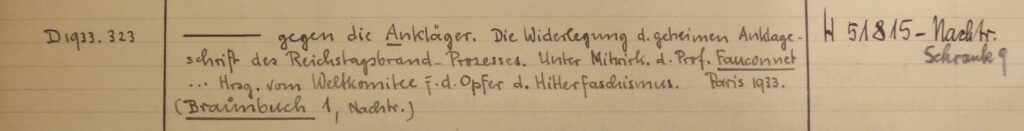 D 1933. 323 ——— gegen die Ankläger. Die Widerlegung d. geheimen Anklage- H 51815 - Nachtr.
schrift des Reichstagsbrand-Prozesses. Unter Mitwirk. d. Prof. Fauconnet Schrank 9
... Hrsg. vom Weltkomitee f. d. Opfer d. Hitlerfaschismus. Paris 1933.
(Braunbuch 1, Nachtr.)